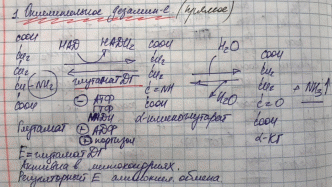 1. Окислительное дезамин-е (прямое)
COOH
CH₂ НАД НАДH₂ COOH H₂O COOH
CH₂ CH₂ CH₂
CH-NH₂ глутаматДГ CH₂ CH₂
COOH ⊖ АТФ C=NH H₂O C=O + NH₃↑
ГТФ COOH COOH
НАДН α-иминоглутарат α-КГ
Глутамат ⊕ АДФ
⊕
E = глутаматДГ
Активна в митохондриях,
Регуляторный E аминокисл. обмена